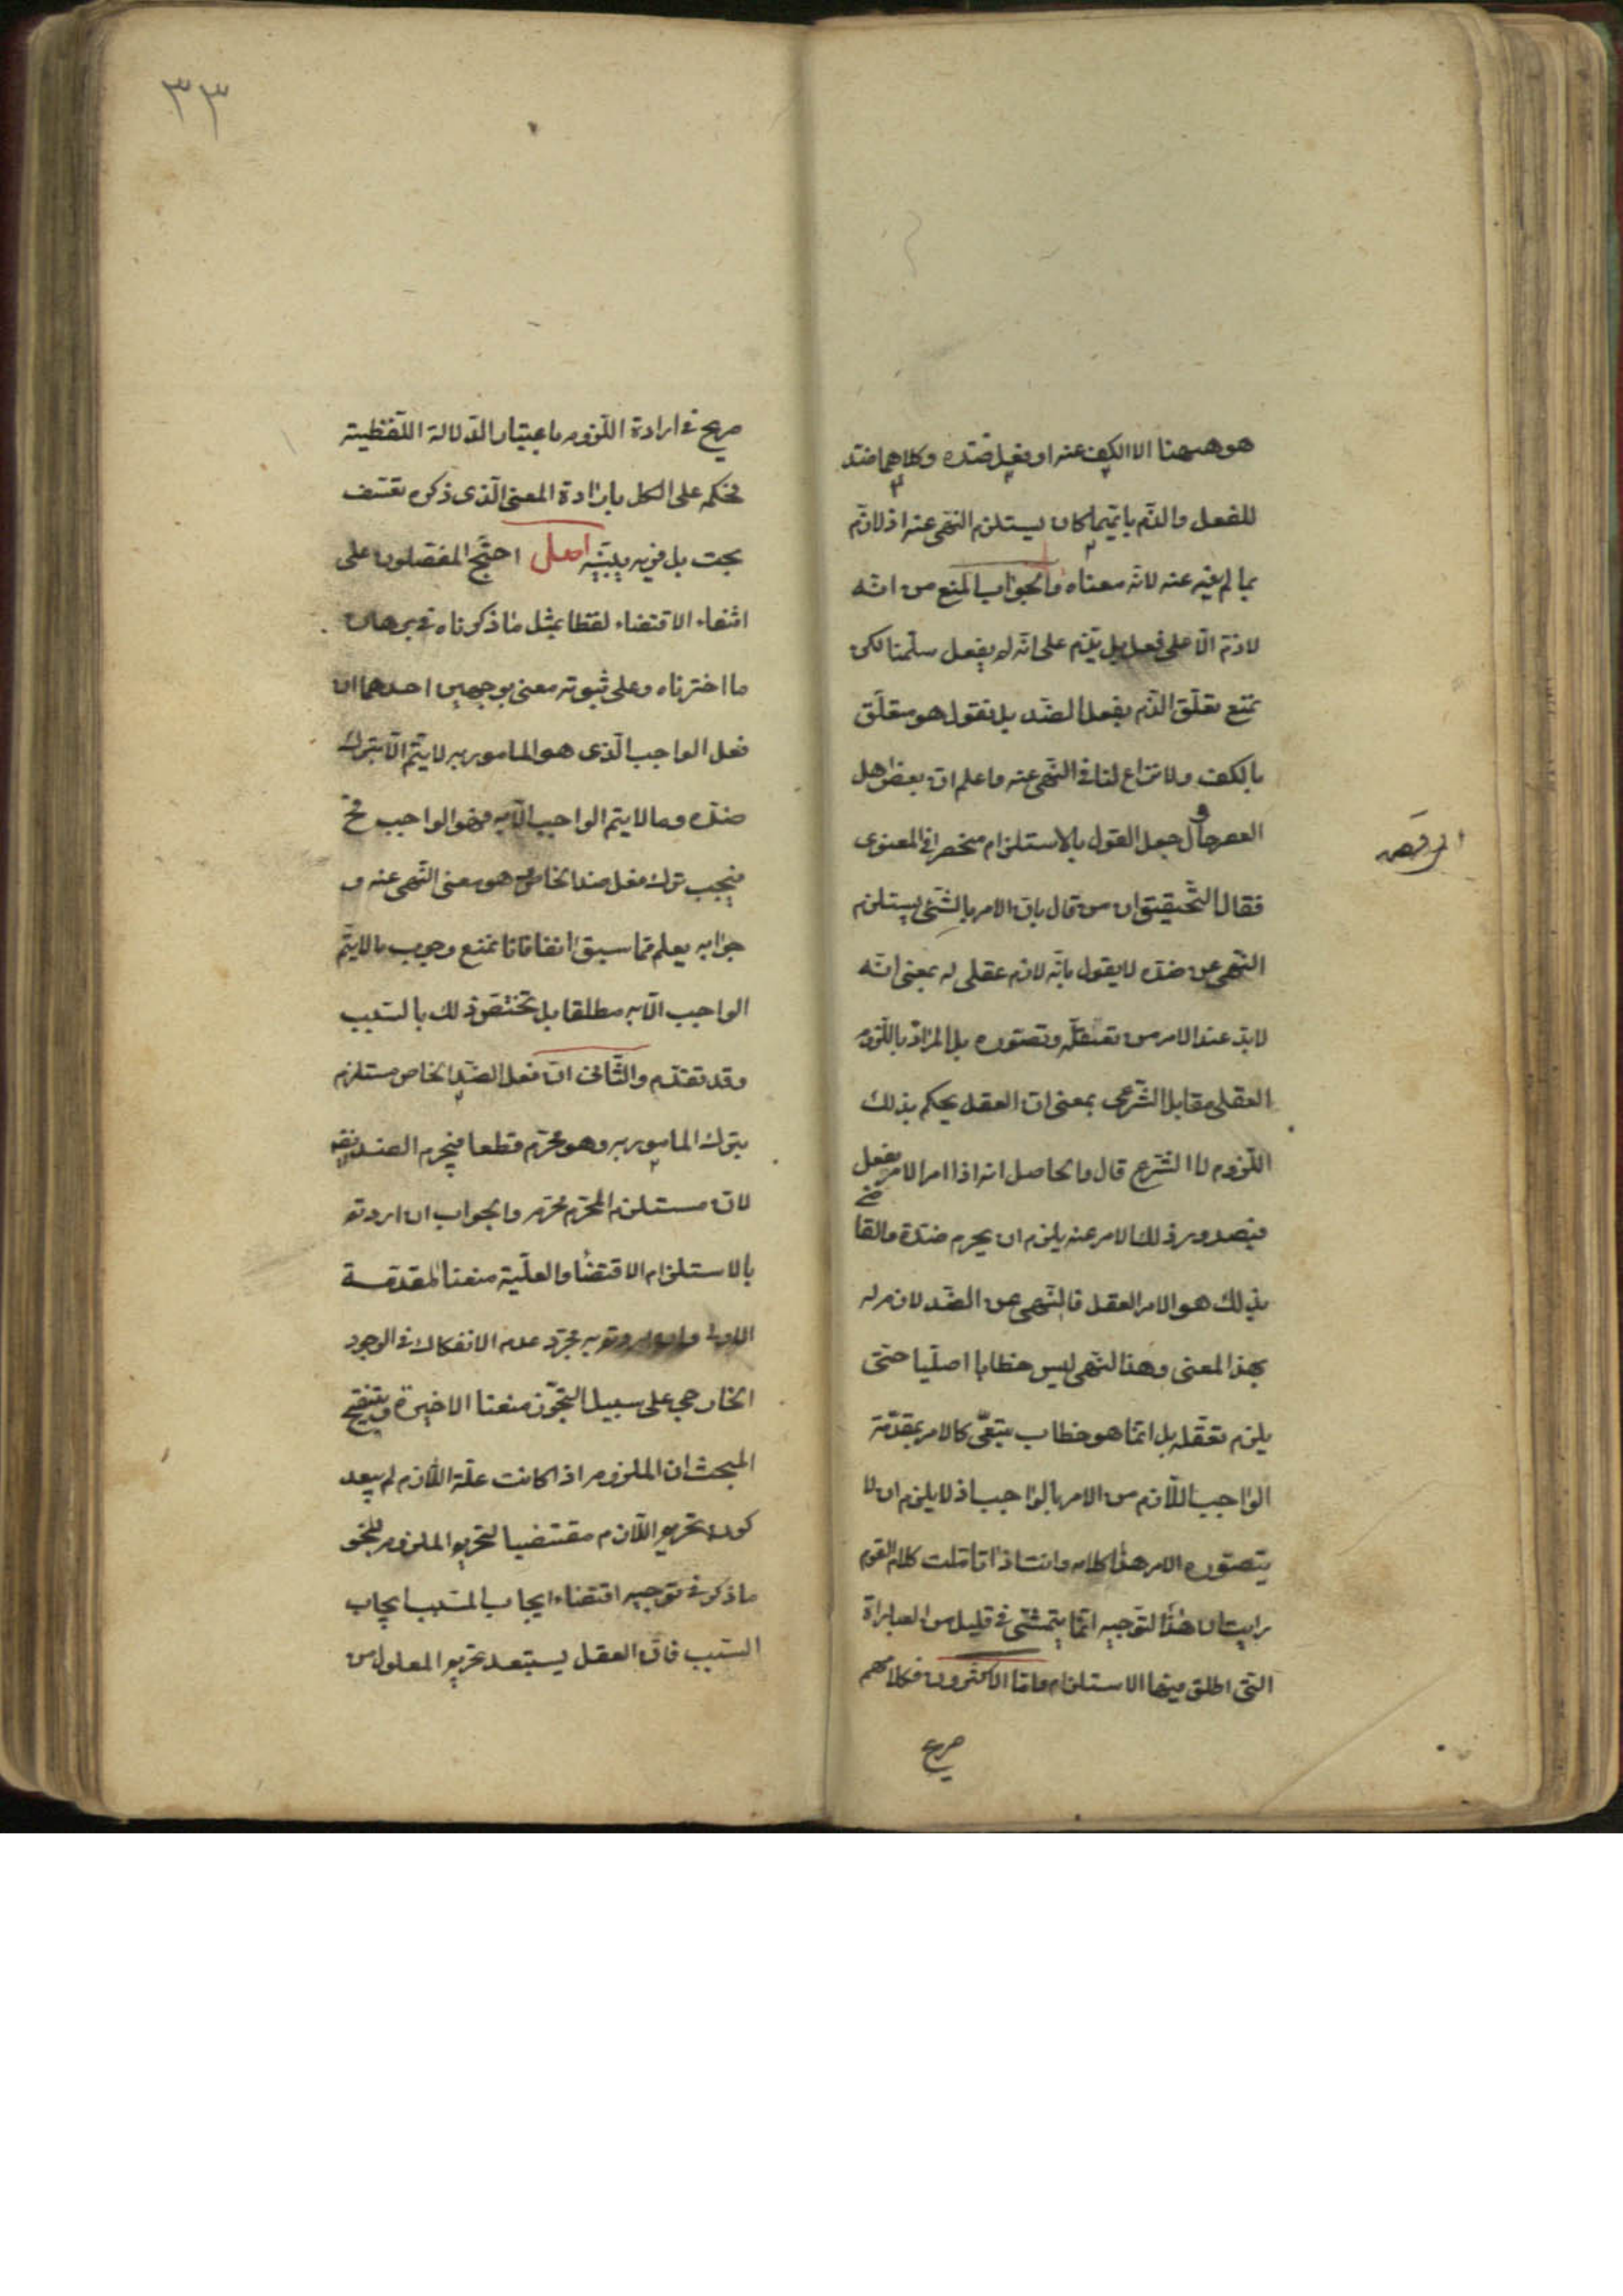 هو ههنا الا الكف عنه او فعل ضده وكلاهما ضد
للفعل والذم بايهما كان يستلزم النهى عنه اذ لا ذم
بما لم ينه عنه لانه معناه والجواب المنع من انه
لا ذم الا على فعل بل يذم على انه لم يفعل سلمنا لكن
نمنع تعلق الذم بفعل الضد بل نقول هو متعلق
بالكف ولا نزاع لنا فى النهى عنه واعلم ان بعض اهل
العصر حاول جعل القول بالاستلزام منحصرا فى المعنوى
فقال التحقيق ان من قال بان الامر بالشئ يستلزم
النهى عن ضده لا يقول بانه لازم عقلى له بمعنى انه
لا بد عند الامر من تعقله وتصوره بل المراد باللزوم
العقلى مقابل الشرعى بمعنى ان العقل يحكم بذلك
اللزوم لا الشرع قال والحاصل انه اذا امر الامر بفعل
فبصدور ذلك الامر عنه يلزم ان يحرم ضده والقا
ضى
بذلك هو الامر العقل فالنهى عن الضد لازم له
بهذا المعنى وهذا النهى ليس خطابا اصليا حتى
يلزم تعقله بل انما هو خطاب تبعى كالامر بمقدمة
الواجب اللازم من الامر بالواجب اذ لا يلزم ان لا
يتصوره الامر هذا كلامه وانت اذا تاملت كلام القوم
رايت ان هذا التوجيه انما يتمشى فى قليل من العبارات
التى اطلق فيها الاستلزام واما الاكثرون فكلامهم
صريح
٣٣
صريح فى ارادة اللزوم باعتبار الدلالة اللفظية
فحكمه على الكل بارادة المعنى الذى ذكره تعسف
بحت بل فرية بينة اصل احتج المفصلون على
انتفاء الاقتضاء لفظا بمثل ما ذكرناه فى برهان
ما اخترناه وعلى ثبوته معنى بوجهين احدهما ان
فعل الواجب الذى هو المامور به لا يتم الا بترك
ضده وما لا يتم الواجب الا به فهو الواجب وح
فيجب ترك فعل ضد الخاص وهو معنى النهى عنه و
جوابه يعلم مما سبق انفا فانا نمنع وجوب ما لا يتم
الواجب الا به مطلقا بل تختص ذلك بالسبب
وقد تقدم والثانى ان فعل الضد الخاص مستلزم
بترك المامور به وهو محرم قطعا فيحرم الضد ايضا
لان مستلزم المحرم محرم والجواب ان اردتم
بالاستلزام الاقتضاء والعلية منعنا المقدمة
الاولى وان اردتم به مجرد عدم الانفكاك فى الوجود
الخارجى على سبيل التجوز منعنا الاخيرة وتنقيح
المبحث ان الملزوم اذا كانت علة اللازم لم يبعد
كون تحريم اللازم مقتضيا لتحريم الملزوم لنحو
ما ذكر فى توجيه اقتضاء ايجاب المسبب ايجاب
السبب فان العقل يستبعد تحريم المعلول من